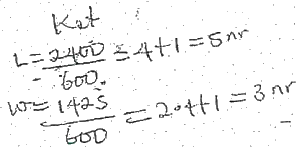 Ket
L = 2400/600 = 4+1 = 5 nr
W = 1425/600 = 2.4+1 = 3 nr